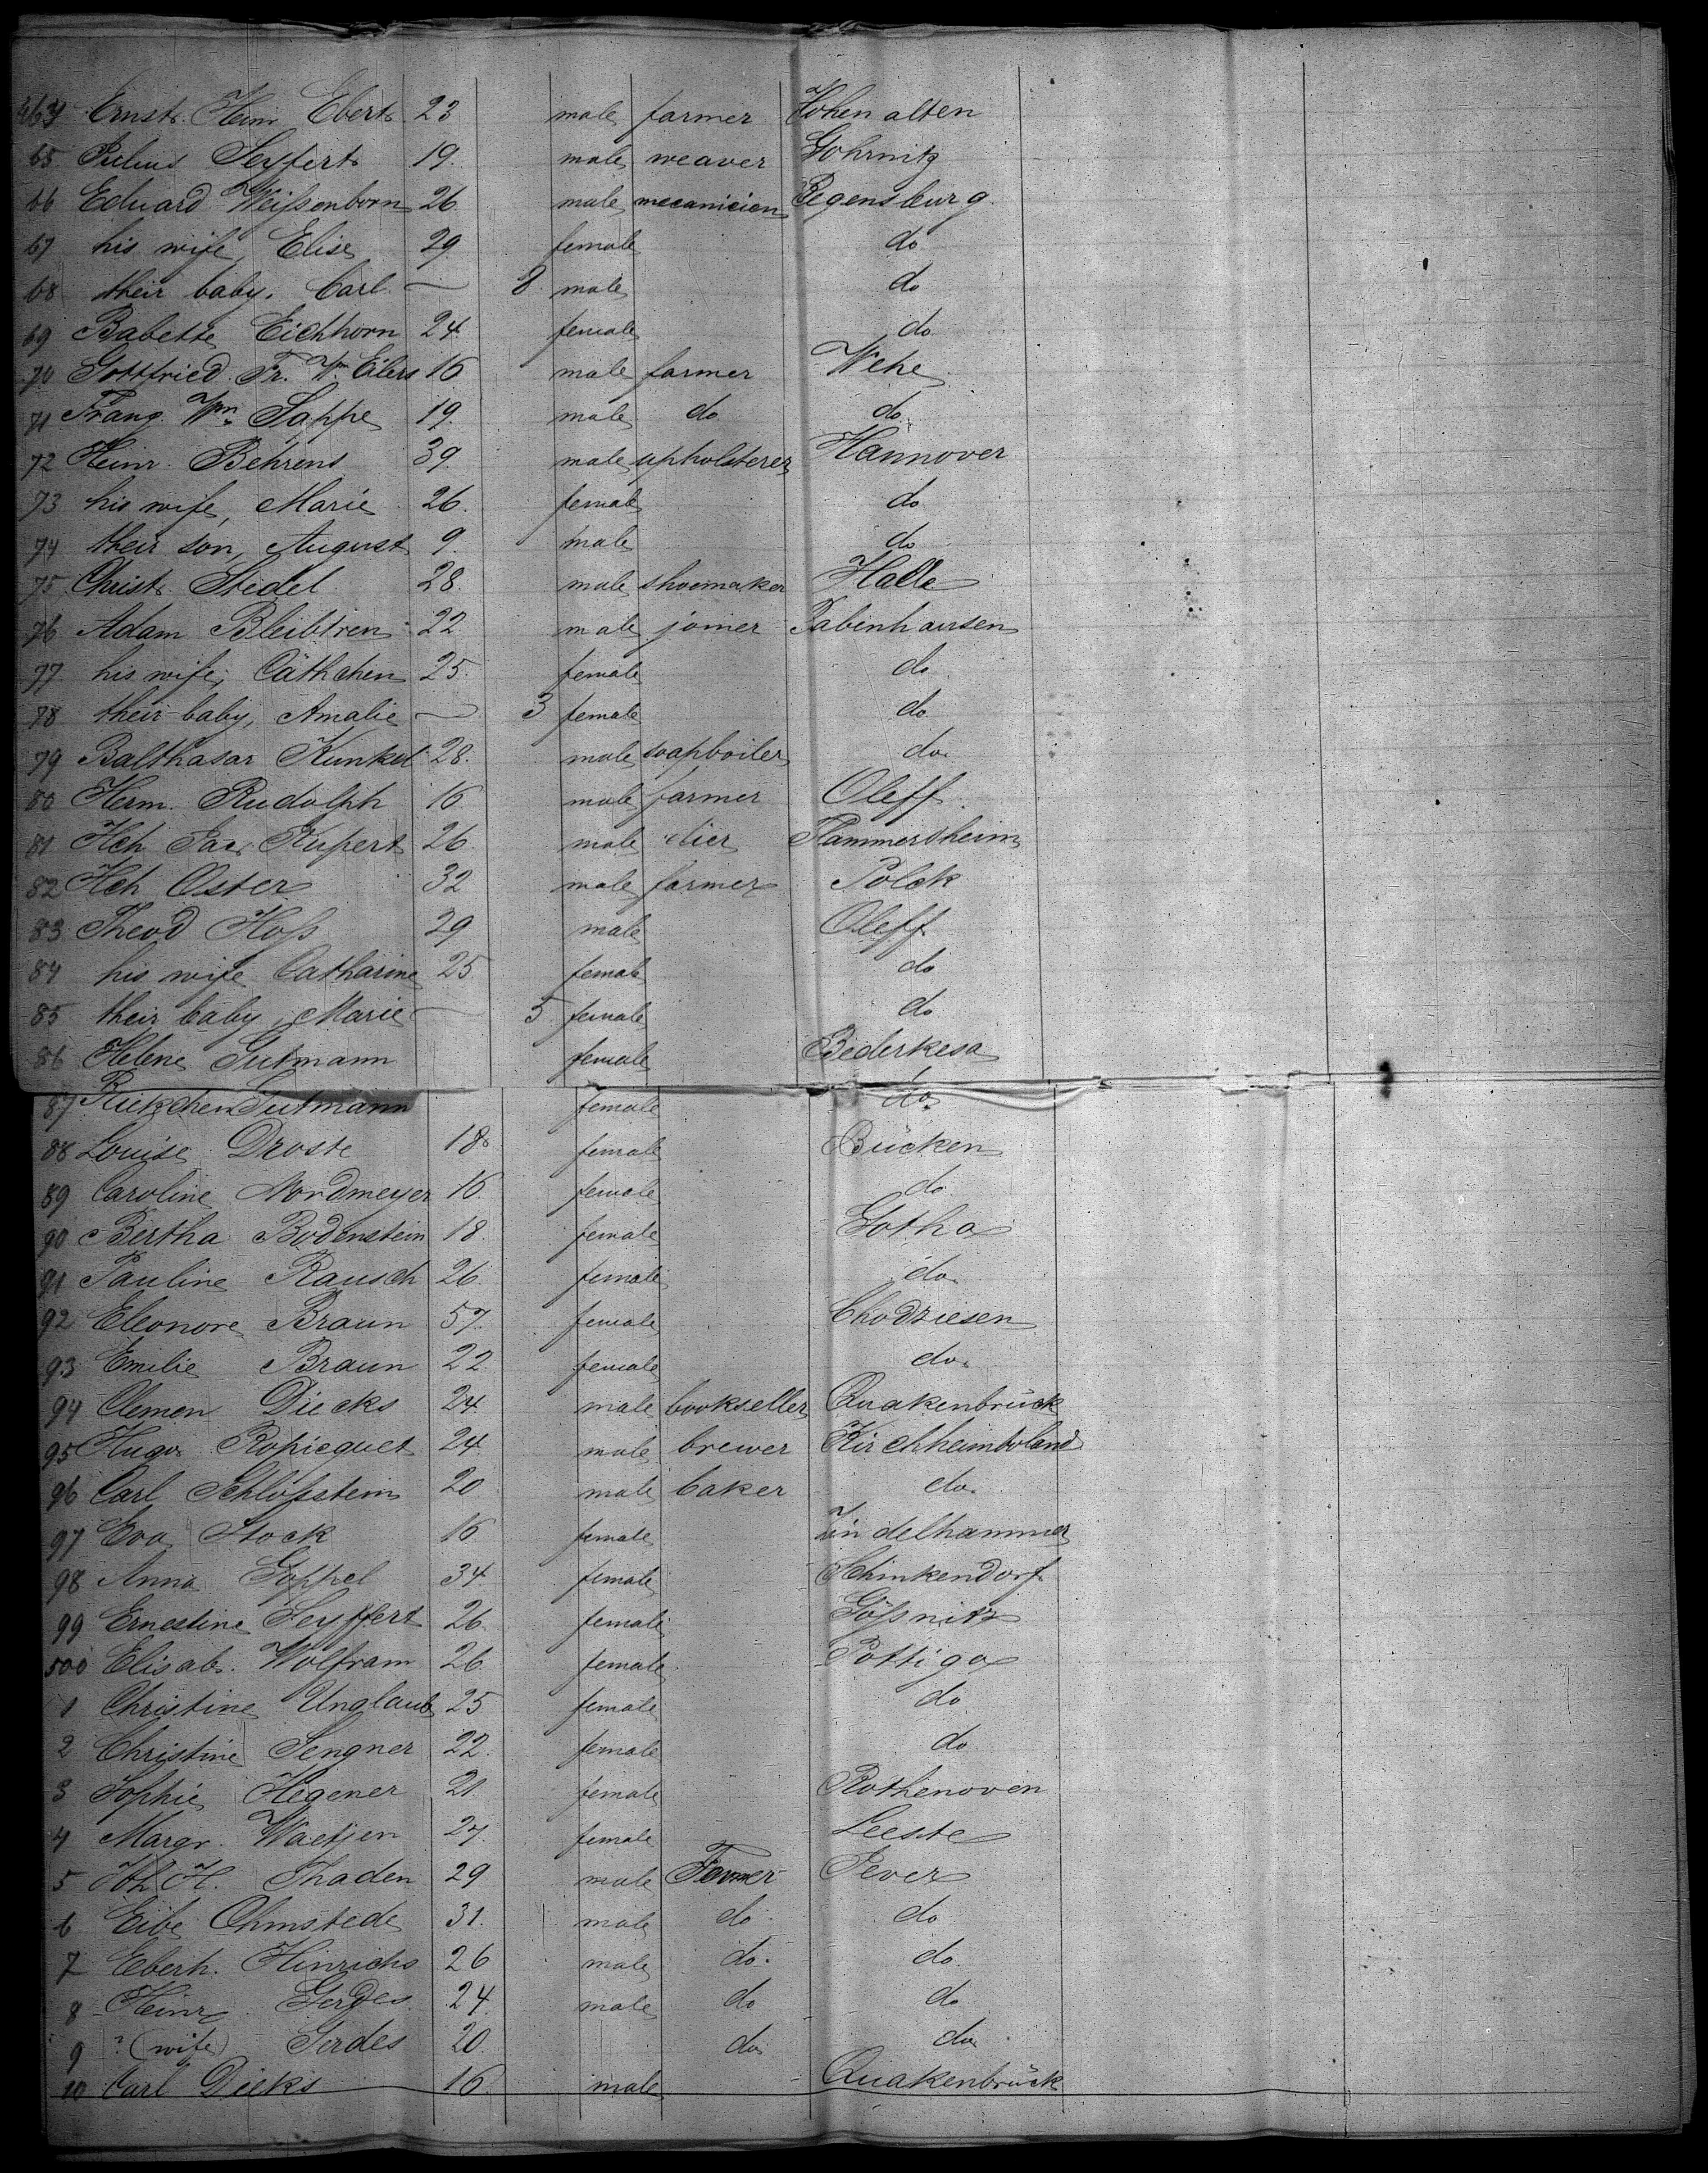 464 Ernst Heinr Ebert 23 male farmer Hohenalten
65 Julius Seyfert 19. male weaver Gohrnitz
66 Eduard Weißenborn 26 male mecanicien Regensburg.
67 his wife, Elise 29 female do
68 their baby, Carl — 8 male do
69 Babette Eichhorn 24 female do
70 Gottfried Fr. Wm Eilers 16 male farmer Wehe
71 Franz Wm. Sappe 19. male do do
72 Heinr. Behrens 39. male upholsterer Hannover
73 his wife, Marie 26. female do
74 their son, August 9. male do
75 Christ. Stedel 28. male shoemaker Halle
76 Adam Bleibtreu 22 male joiner Babenhausen
77 his wife, Cäthchen 25. female do
78 their baby, Amalie — 3 female do
79 Balthasar Kunkel 28. male soapboiler do.
80 Herm. Rudolph 16 male farmer Oleff.
81 Hch Jac. Rupert 26 male Flammersheim
82 Hch Oster 32 male farmer Polck
83 Theod Hoß 29 male Oleff
84 his wife Catharine 25 female do
85 their baby, Marie — 5 female do
86 Helene Gutmann female Bederkesa
87 Rickchen Gutmann female do.
88 Louise Droste 18. female Bücken
89 Caroline Nordmeyer 16. female do
90 Bertha Bodenstein 18. female Gotha
91 Pauline Rausch 26 female do.
92 Eleonore Braun 57. female Chodziesen
93 Emilie Braun 22. female do.
94 Clemen Diecks 24. male bookseller Quakenbrück
95 Hugo Ropicquet 24 male brewer Kirchheimboland
96 Carl Schloßstein 20 male baker do.
97 Eva Stock 16 female Zindelhammer
98 Anna Goppel 34. female Schinkendorf
99 Ernestine Seyffert 26. female Gößnitz
500 Elisab. Wolfram 26 female Pottiga
1 Christine Unglaub 25 female do
2 Christine Sengner 22. female do
3 Sophie Hegener 21 female Rothenoven
4 Margr. Waetjen 27. female Leeste
5 Joh H. Thaden 29 male Farmer Jever
6 Eibe Ohmstede 31. male do do
7 Eberh. Hinrichs 26 male do. do.
8 Heinr. Gerdes 24 male do do
9 ? (wife) Gerdes 20. do. do.
10 Carl Dieks 16. male Quakenbrück